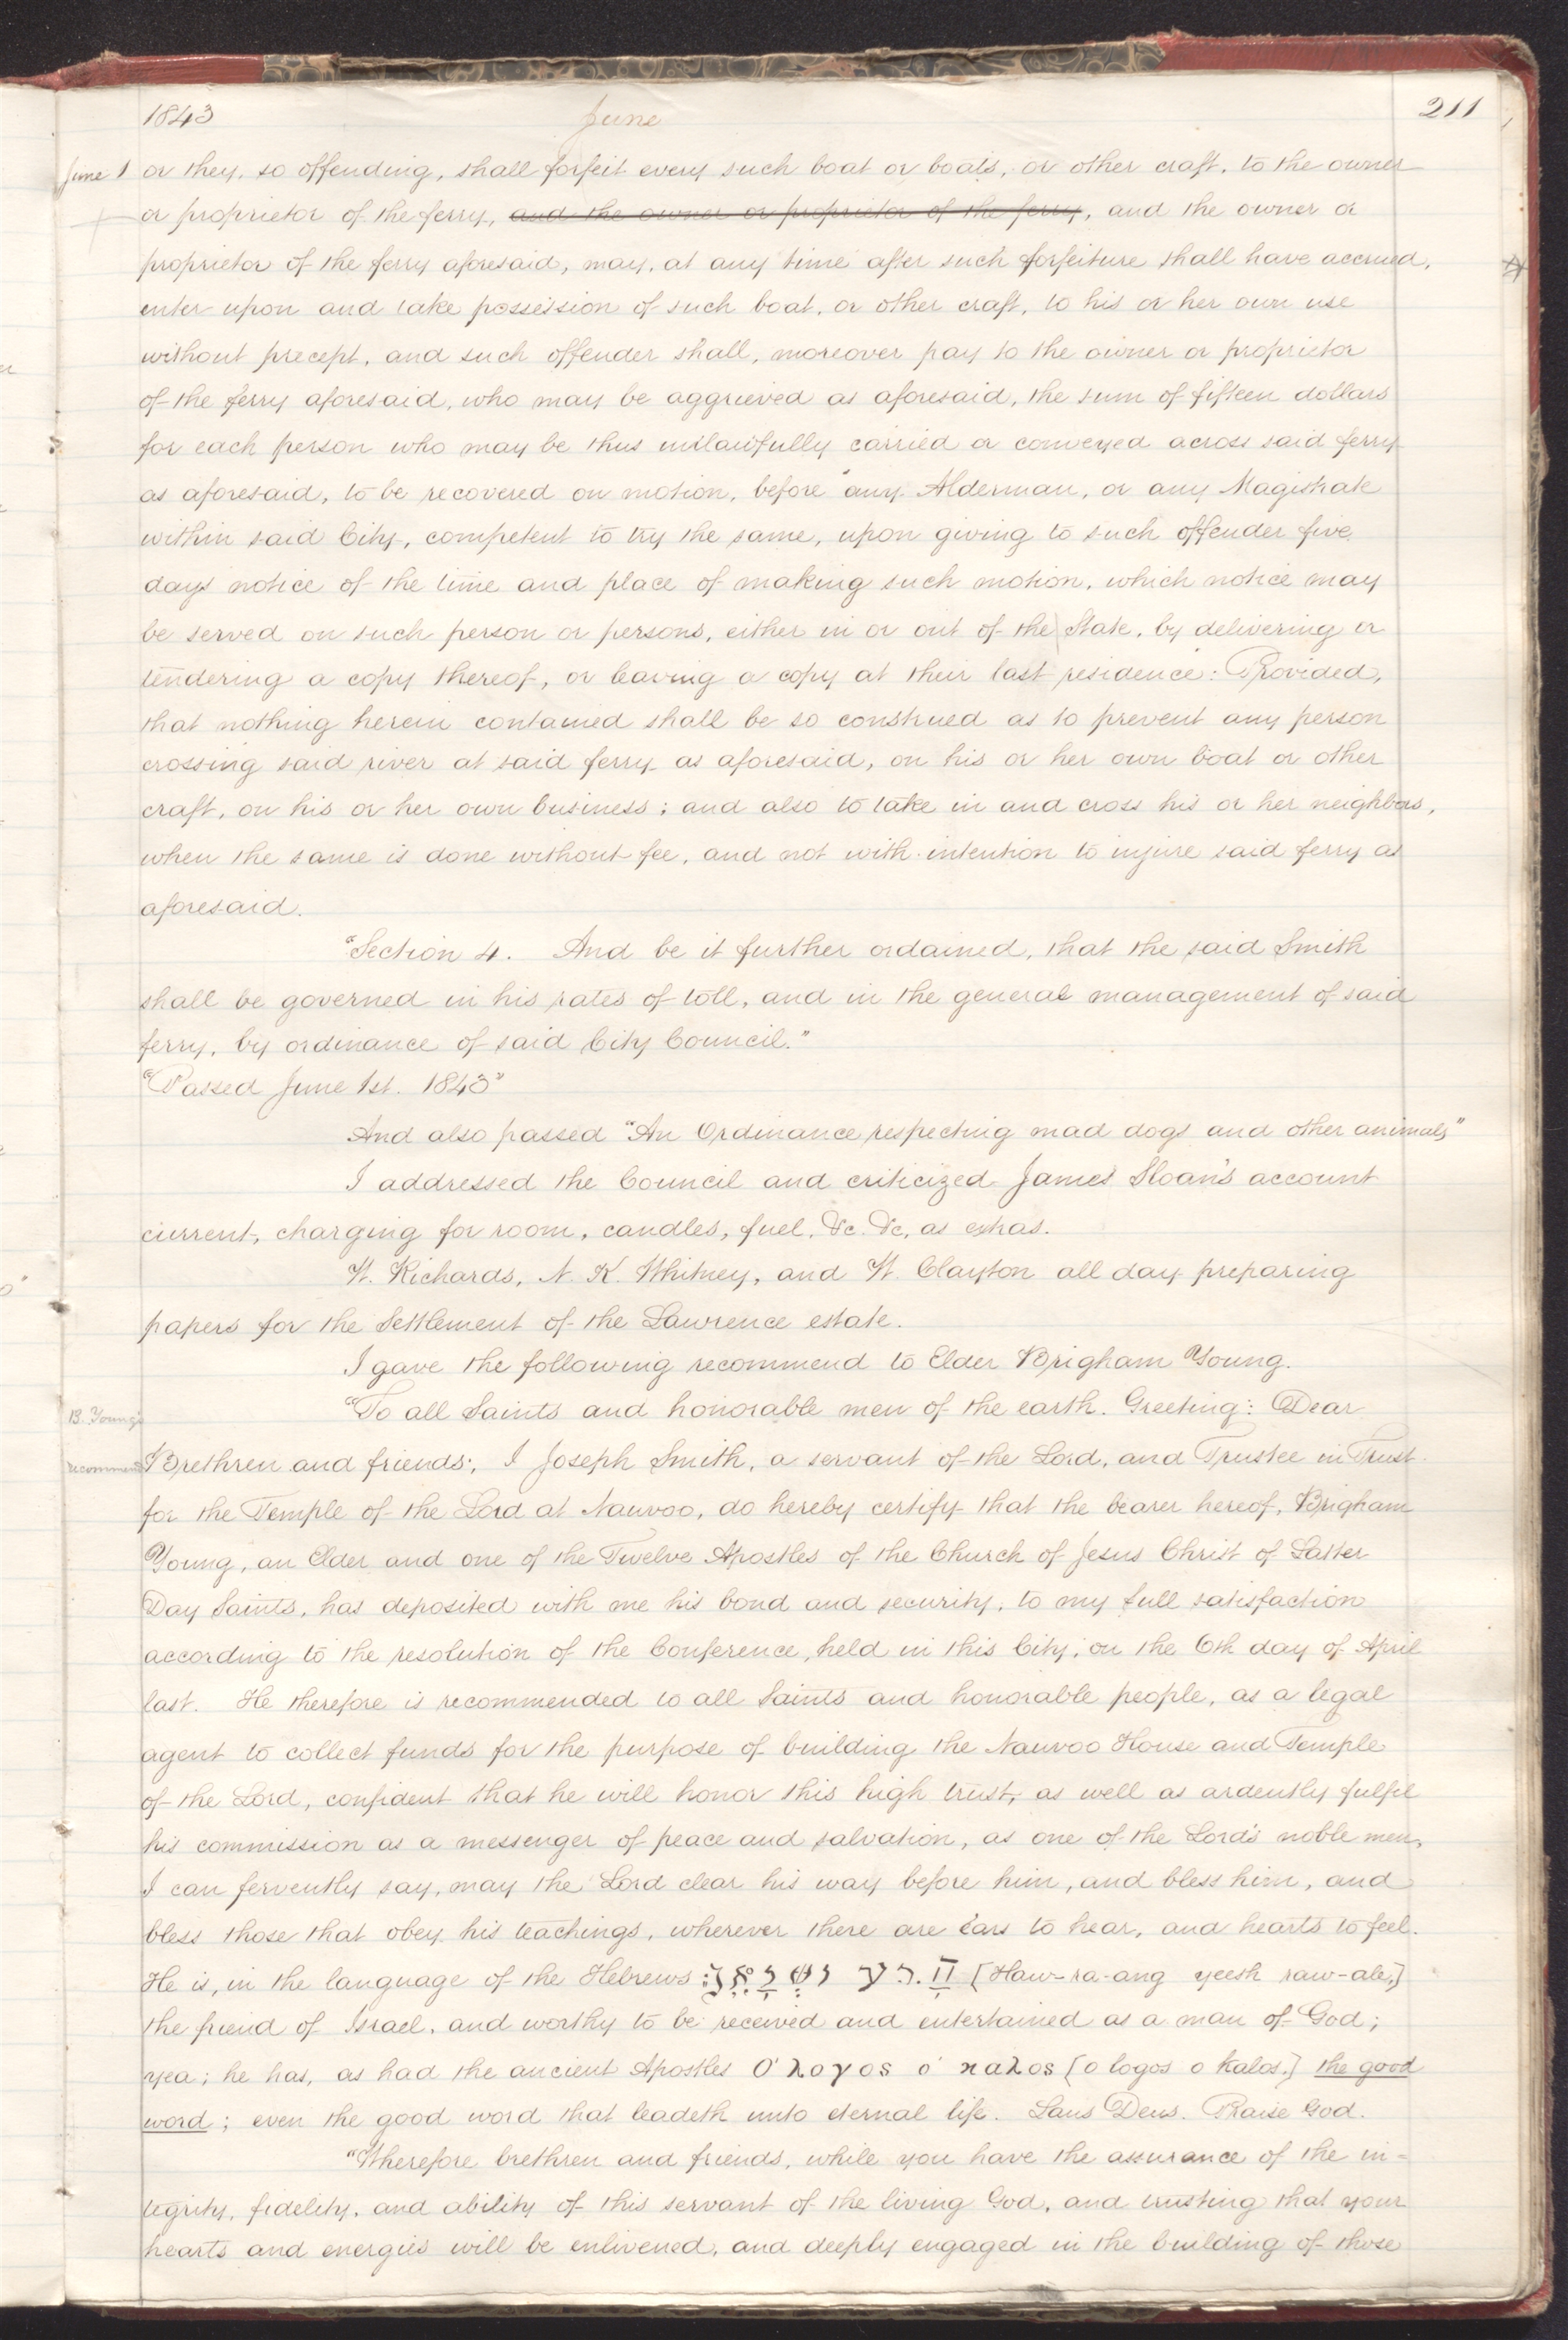 1843 June 211
June 1 or they, so offending, shall forfeit every such boat or boats, or other craft, to the owner
or proprietor of the ferry, and the owner or proprietor of the ferry, and the owner or
proprietor of the ferry aforesaid, may, at any time after such forfeiture shall have accrued,
enter upon and take possession of such boat, or other craft, to his or her own use
without precept, and such offender shall, moreover pay to the owner or proprietor
of the ferry aforesaid, who may be aggrieved as aforesaid, the sum of fifteen dollars
for each person who may be thus unlawfully carried or conveyed across said ferry
as aforesaid, to be recovered on motion, before any Alderman, or any Magistrate
within said City, competent to try the same, upon giving to such offender five
days notice of the time and place of making such motion, which notice may
be served on such person or persons, either in or out of the State, by delivering or
tendering a copy thereof, or leaving a copy at their last residence: Provided,
that nothing herein contained shall be so construed as to prevent any person
crossing said river at said ferry as aforesaid, on his or her own boat or other
craft, on his or her own business; and also to take in and cross his or her neighbors,
when the same is done without fee, and not with intention to injure said ferry as
aforesaid.
"Section 4. And be it further ordained, that the said Smith
shall be governed in his rates of toll, and in the general management of said
ferry, by ordinance of said City Council."
"Passed June 1st. 1843"
And also passed "An Ordinance respecting mad dogs and other animals"
I addressed the Council and criticized James Sloan's account
current, charging for room, candles, fuel, &c. &c, as extras.
W. Richards, N. K. Whitney, and W. Clayton all day preparing
papers for the Settlement of the Lawrence estate.
I gave the following recommend to Elder Brigham Young.
B. Young's "To all Saints and honorable men of the earth. Greeting: Dear
recommend Brethren and friends; I Joseph Smith, a servant of the Lord, and Trustee in Trust
for the Temple of the Lord at Nauvoo, do hereby certify that the bearer hereof, Brigham
Young, an Elder and one of the Twelve Apostles of the Church of Jesus Christ of Latter
Day Saints, has deposited with me his bond and security, to my full satisfaction
according to the resolution of the Conference, held in this City, on the 6th day of April
last. He therefore is recommended to all Saints and honorable people, as a legal
agent to collect funds for the purpose of building the Nauvoo House and Temple
of the Lord, confident that he will honor this high trust, as well as ardently fulfil
his commission as a messenger of peace and salvation, as one of the Lord's noble men,
I can fervently say, may the Lord clear his way before him, and bless him, and
bless those that obey his teachings, wherever there are ears to hear, and hearts to feel.
He is, in the language of the Hebrews [Haw-ra-ang yeesh raw-ale,]
the friend of Israel, and worthy to be received and entertained as a man of God;
yea; he has, as had the ancient Apostles Ο' λογος ο' καλος [o logos o kalos.] the good
word; even the good word that leadeth unto eternal life. Laus Deus. Praise God.
"Wherefore brethren and friends, while you have the assurance of the in=
tegrity, fidelity, and ability of this servant of the living God, and trusting that your
hearts and energies will be enlivened, and deeply engaged in the building of those